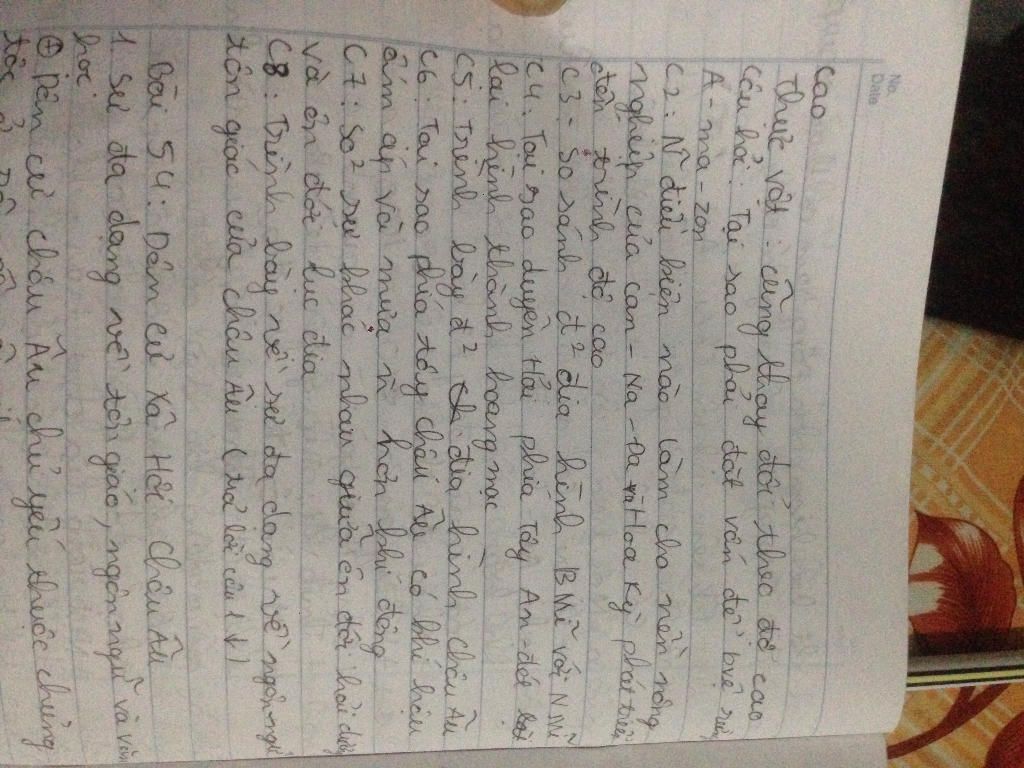 No.
Date
cao
Thực vật : cũng thay đổi theo độ cao
Câu hỏi : Tại sao phải đặt vấn đề bvệ rừng
A-ma-zon
C2 : N điều kiện nào làm cho nền nông
nghiệp của can-Na-Da Hoa Kỳ phát triển
đến trình độ cao
C3 - So sánh đ² địa hình BMĩ với NMĩ
C4 : Tại sao duyên Hải phía Tây An-đét lại
lại hình thành hoang mạc
C5 : Trình bày đ² địa hình châu Âu
C6 : Tại sao phía tây châu Âu có khí hậu
ấm áp và mưa n hơn khí đông
C7 : So² sự khác nhau giữa ôn đới hải dương
và ôn đới lục địa
C8 : Trình bày về sự đa dạng về ngôn ngữ
tôn giáo của châu Âu (trả lời câu 1 ↓)
Bài 54 : Dân cư Xã Hội Châu Âu
1. Sự đa dạng về tôn giáo, ngôn ngữ và văn
hoá
⊕ Dân cư châu Âu chủ yếu thuộc chủng
tộc